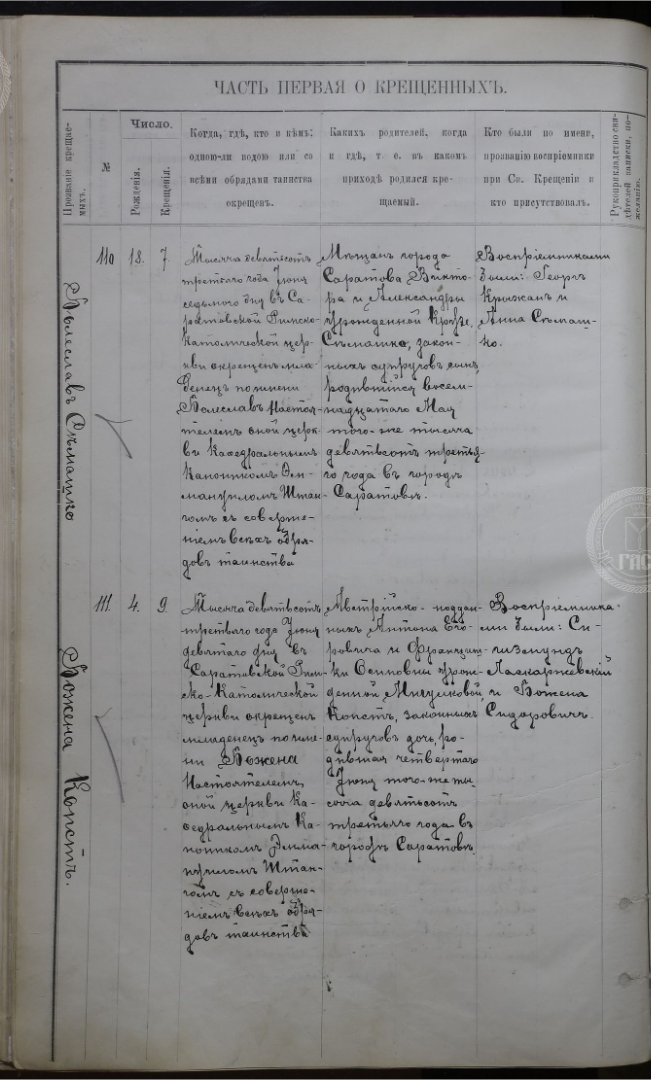 ЧАСТЬ ПЕРВАЯ О КРЕЩЕННЫХЪ.
Прозваніе крещае-
мыхъ.
№
Число.
Рожденія.
Крещенія.
Когда, гдѣ, кто и кѣмъ:
одною-ли водою или со
всѣми обрядами таинства
окрещенъ.
Какихъ родителей, когда
и гдѣ, т. е. въ какомъ
приходѣ родился кре-
щаемый.
Кто были по имени,
прозванію воспріемники
при Св. Крещеніи и
кто присутствовалъ.
Рукоприкладство сви-
дѣтелей записи, по-
желанію.
Болеславъ Съмашко
110
18.
7.
Тысяча девятьсотъ
третьяго года Іюня
седьмого дня въ Са-
ратовской Римско-
Католической цер-
кви окрещенъ мла-
денецъ по имени
Болеславъ Настоя-
телемъ оной церк
въ Кафедральнымъ
Каноникомъ Эм-
мануиломъ Штан-
гомъ съ соверше-
ніемъ всѣхъ обря-
довъ таинства
Мѣщанъ города
Саратова Викто-
ра и Александры
урожденной Крузе,
Съмашко, закон-
ныхъ супруговъ сынъ,
родившійся восем-
надцатаго Мая
того-же тысяча
девятьсотъ третья-
го года въ городѣ
Саратовѣ.
Воспріемниками
были: Георг
Крижан и
Анна Съмаш-
ко.
Божена Копстъ.
111.
4.
9.
Тысяча девятьсотъ
третьяго года Іюня
девятаго дня въ
Саратовской Рим-
ско-Католической
церкви окрещенъ
младенецъ по име-
ни Божена
Настоятелемъ
оной церкви Ка-
ѳедральнымъ Ка-
ноникомъ Эмма-
нуиломъ Штан-
гомъ съ соверше-
ніемъ всѣхъ обря-
довъ таинства
Австрійско-поддан-
ныхъ Антона Его-
ровича и Францишш-
ки Осиповны урож-
денной Копстъ, законныхъ
супруговъ дочь, ро-
дившая четвертаго
Іюня того-же ты-
сяча девятьсотъ
третьяго года въ
городѣ Саратовѣ.
Воспріемника-
ми были: Си-
гизмундъ
Ласкаржевскій
и Божена
Сидоровичъ.